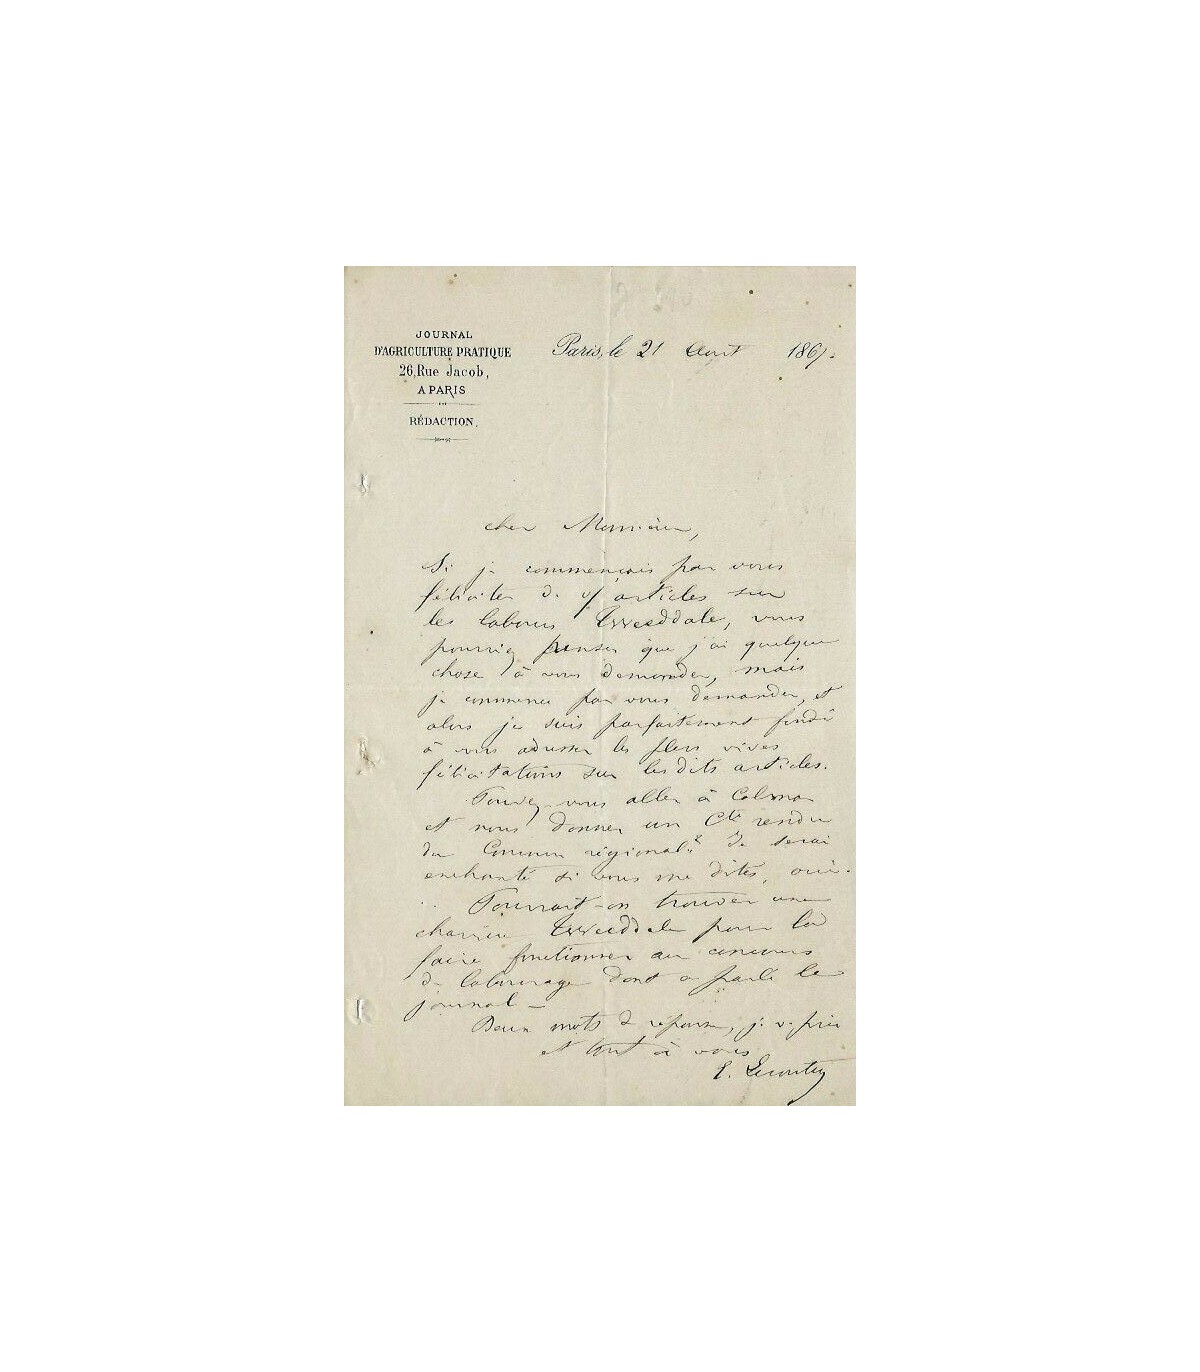 JOURNAL
D'AGRICULTURE PRATIQUE
26, Rue Jacob,
A PARIS
RÉDACTION.
Paris, le 21 Août 1867.
cher Monsieur,
Si je commençais par vous
féliciter de vs articles sur
les labours Tweeddale, vous
pourriez penser que j'ai quelque
chose à vous demander, mais
je commence par vous demander, et
alors je suis parfaitement fondé
à vous adresser les plus vives
félicitations sur lesdits articles.
Pouvez-vous aller à Colmar
et nous donner un Cte rendu
du Concours régional? Je serai
enchanté si vous me dites, oui.
Pourrait-on trouver une
charrue Tweeddale pour la
faire fonctionner au concours
de labourage dont a parlé le
journal –
Deux mots de réponse, je v. prie
et tout à vous
E. Lecouteux